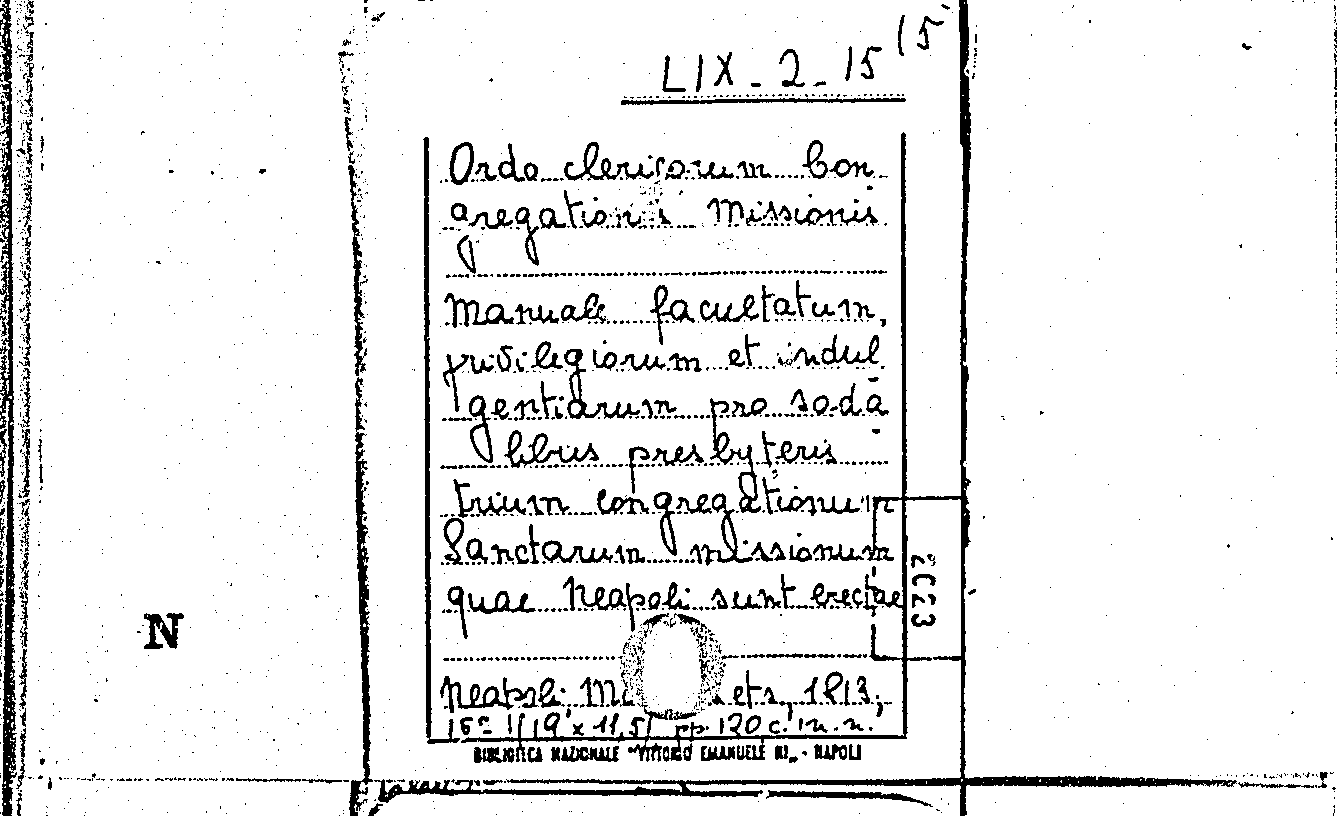 LIX - 2 - 15 (5
Ordo clericorum Con
gregationis Missionis
Manuale facultatum,
privilegiorum et indul
gentiarum pro soda
libus presbyteris
trium congregationum
Sanctarum missionum
quae Neapoli sunt erectae
2023
N
Neapoli 1813,
(19 x 11,5) pp. 120 c. in. n.
BIBLIOTECA NAZIONALE "VITTORIO EMANUELE III" - NAPOLI